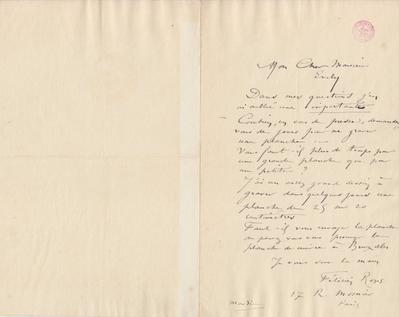 Mon Cher Monsieur
Evely
Dans mes questions j'en
ai oublié une importante
Combien, en cas de presse, demandez
vous de jours pour me graver
une planche
Vous faut-il plus de temps pour
une grande planche que pour
une petite ?
J'ai un assez grand dessin à
graver dans quelques jours une
planche de 25 sur 20
centimètres
Faut-il vous envoyer la planche
ou pouvez vous vous procurer la
planche de cuivre à Bruxelles
Je vous serre la main
Félicien Rops
17 R. Mosnier
Paris
mardi